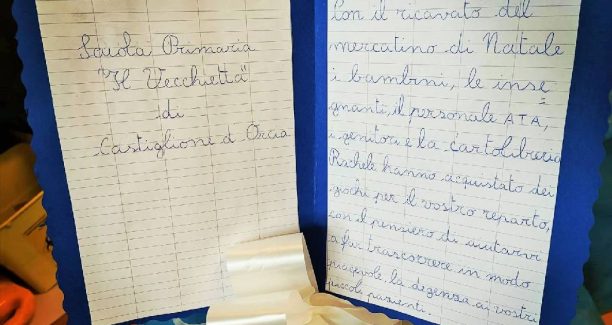 Scuola Primaria
"Il Vecchietta"
di
Castiglione d'Orcia
Con il ricavato del
mercatino di Natale
i bambini, le inse
gnanti, il personale ATA,
i genitori e la cartolibreria
Rachele hanno acquistato dei
giochi per il vostro reparto,
con il pensiero di aiutarvi
a far trascorrere in modo
piacevole, la degenza ai vostri
piccoli pazienti.